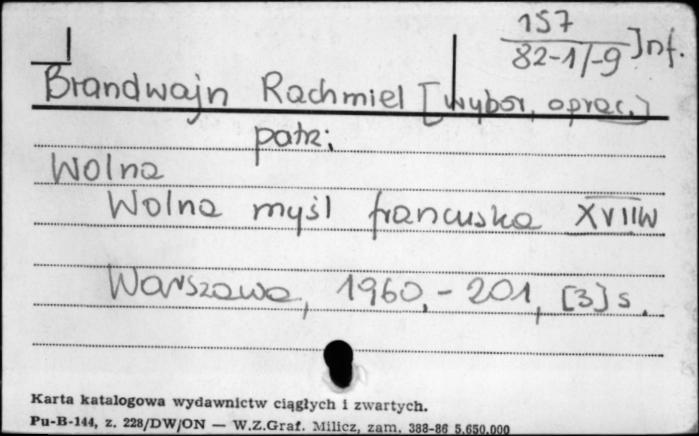 157
82-1/-9 Inf.
Brandwajn Rachmiel [wybór, oprac.]
patrz:
Wolna
Wolna myśl francuska XVIIIW
Warszawa, 1960,-201, [3] s.
Karta katalogowa wydawnictw ciągłych i zwartych.
Pu-B-144, z. 228/DW/ON — W.Z.Graf. Milicz, zam. 388-86 5.650.000